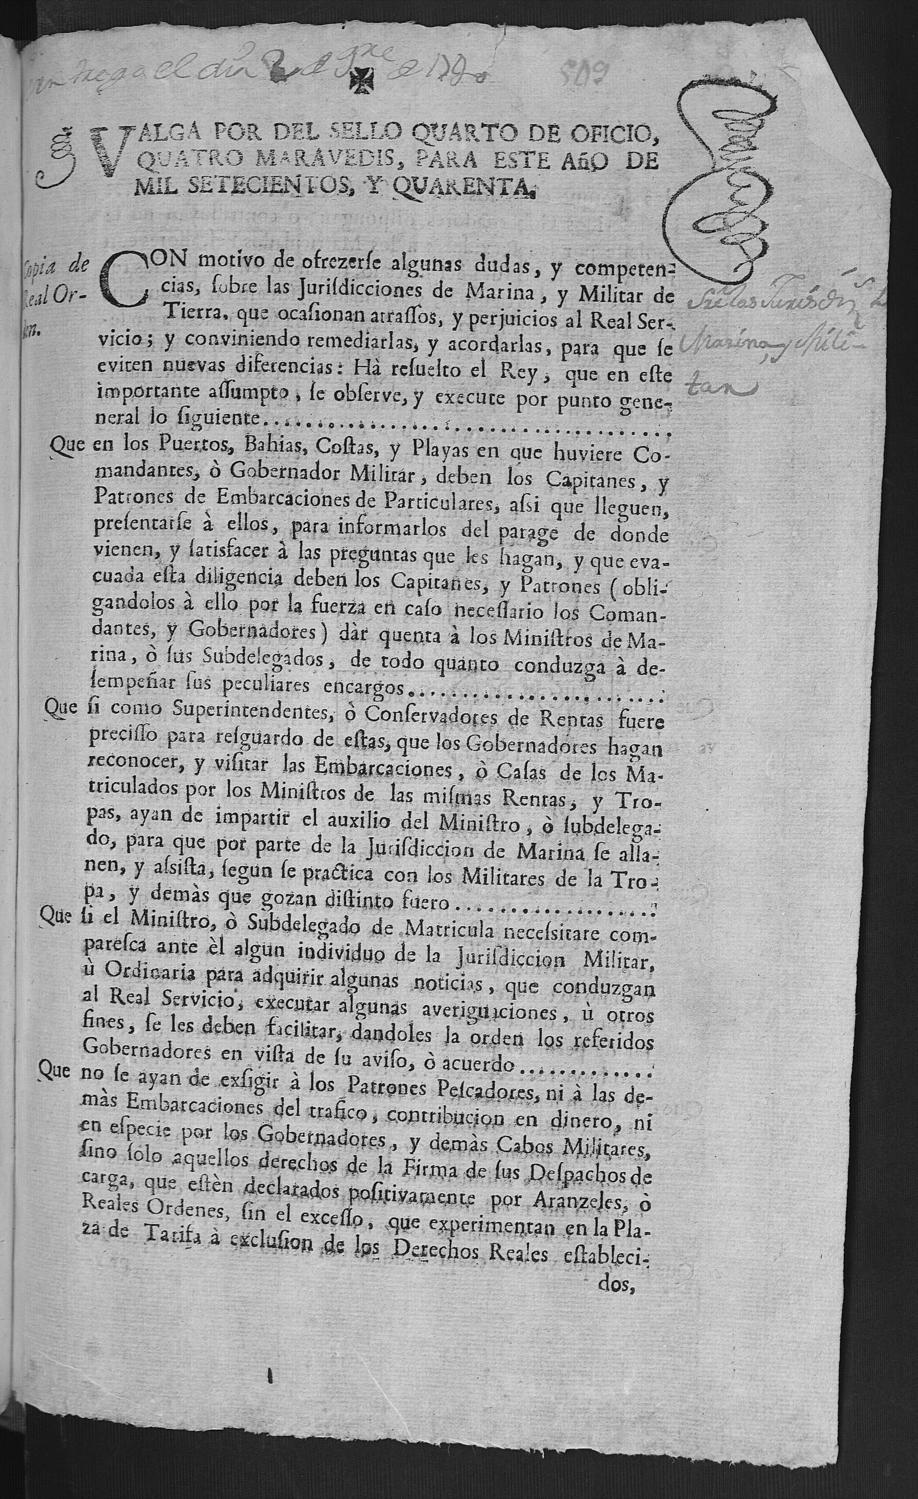 el dia 2 de
509
VALGA POR DEL SELLO QUARTO DE OFICIO,
QUATRO MARAVEDIS, PARA ESTE Año DE
MIL SETECIENTOS, Y QUARENTA.
Copia de
Real Or-
den.
CON motivo de ofrezerſe algunas dudas, y competen-
cias, ſobre las Juriſdicciones de Marina, y Militar de
Tierra, que ocaſionan atraſſos, y perjuicios al Real Ser-
vicio; y conviniendo remediarlas, y acordarlas, para que ſe
eviten nuevas diferencias: Hà reſuelto el Rey, que en eſte
importante aſſumpto, ſe obſerve, y execute por punto gene-
neral lo ſiguiente......................................
Sre las Jurisdin.s de
Marina, y Mili-
tar
Que en los Puertos, Bahias, Coſtas, y Playas en que huviere Co-
mandantes, ò Gobernador Militar, deben los Capitanes, y
Patrones de Embarcaciones de Particulares, aſsi que lleguen,
preſentarſe à ellos, para informarlos del parage de donde
vienen, y ſatisfacer à las preguntas que les hagan, y que eva-
cuada eſta diligencia deben los Capitanes, y Patrones (obli-
gandolos à ello por la fuerza en caſo neceſſario los Coman-
dantes, y Gobernadores) dàr quenta à los Miniſtros de Ma-
rina, ò ſus Subdelegados, de todo quanto conduzga à de-
ſempeñar ſus peculiares encargos........................
Que ſi como Superintendentes, ò Conſervadores de Rentas fuere
preciſſo para reſguardo de eſtas, que los Gobernadores hagan
reconocer, y viſitar las Embarcaciones, ò Caſas de los Ma-
triculados por los Miniſtros de las miſmas Rentas, y Tro-
pas, ayan de impartir el auxilio del Miniſtro, ò ſubdelega-
do, para que por parte de la Juriſdiccion de Marina ſe alla-
nen, y aſsiſta, ſegun ſe practica con los Militares de la Tro-
pa, y demàs que gozan diſtinto fuero...................
Que ſi el Miniſtro, ò Subdelegado de Matricula neceſsitare com-
pareſca ante èl algun individuo de la Juriſdiccion Militar,
ù Ordinaria para adquirir algunas noticias, que conduzgan
al Real Servicio, executar algunas averiguaciones, ù otros
fines, ſe les deben facilitar, dandoles la orden los referidos
Gobernadores en viſta de ſu aviſo, ò acuerdo.............
Que no ſe ayan de exſigir à los Patrones Peſcadores, ni à las de-
màs Embarcaciones del trafico, contribucion en dinero, ni
en eſpecie por los Gobernadores, y demàs Cabos Militares,
ſino ſolo aquellos derechos de la Firma de ſus Deſpachos de
carga, que eſtèn declarados poſitivamente por Aranzeles, ò
Reales Ordenes, ſin el exceſſo, que experimentan en la Pla-
za de Tarifa à excluſion de los Derechos Reales eſtableci-
dos,